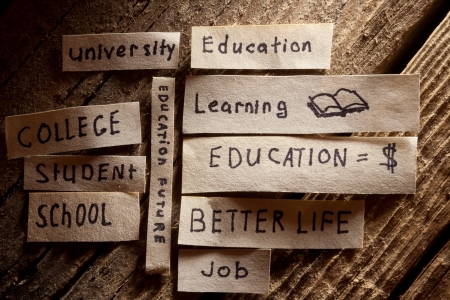 university
Education
Learning
COLLEGE
EDUCATION = $
STUDENT
SCHOOL
EDUCATION FUTURE
BETTER LIFE
Job